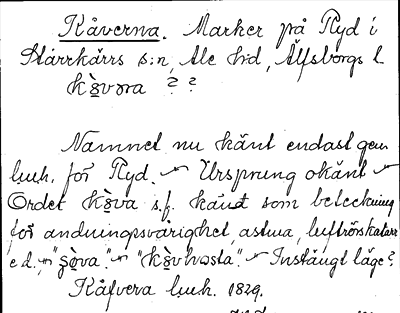 Kåverna. Marker på Ryd i
Starrkärrs s:n, Ale hd, Älfsborgs l.
kò̤vᴏra ? ?
Namnet nu känt endast gen.
luh. för Ryd. - Ursprung okänt -
Ordet kò̤va s.f. känt som beteckning
för andningssvårighet, astma, luftrörskatarr
e d., - "gò̤va". - "kò̤vhosta". - Instängt läge?
Kåfvera luh. 1829.